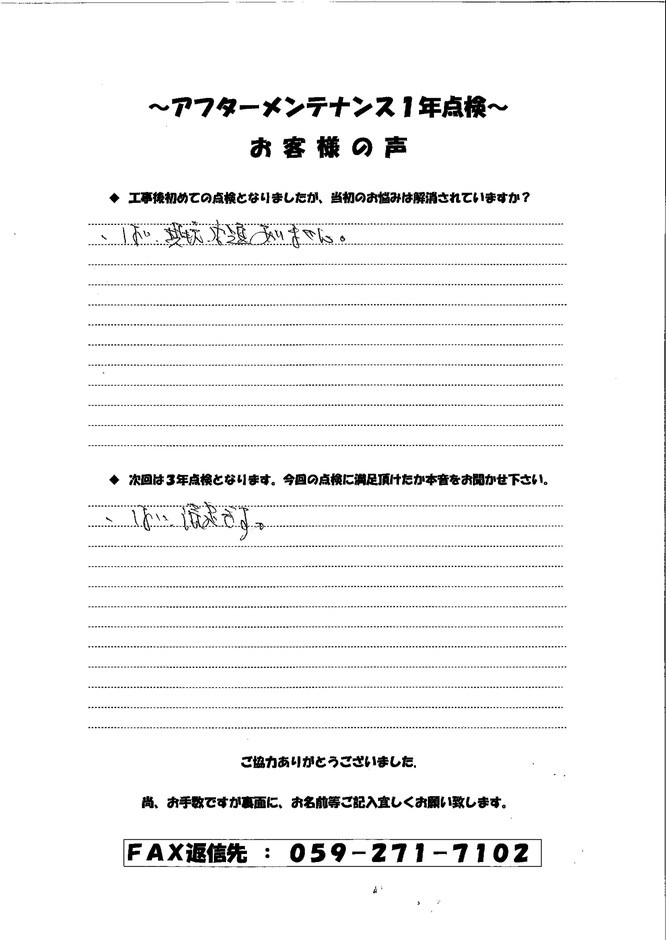 ～アフターメンテナンス１年点検～
お客様の声
◆ 工事後初めての点検となりましたが、当初のお悩みは解消されていますか？
、はい、現状、問題ありません。
◆ 次回は３年点検となります。今回の点検に満足頂けたか本音をお聞かせ下さい。
、はい、満足です。
ご協力ありがとうございました。
尚、お手数ですが裏面に、お名前等ご記入宜しくお願い致します。
ＦＡＸ返信先 ： ０５９－２７１－７１０２